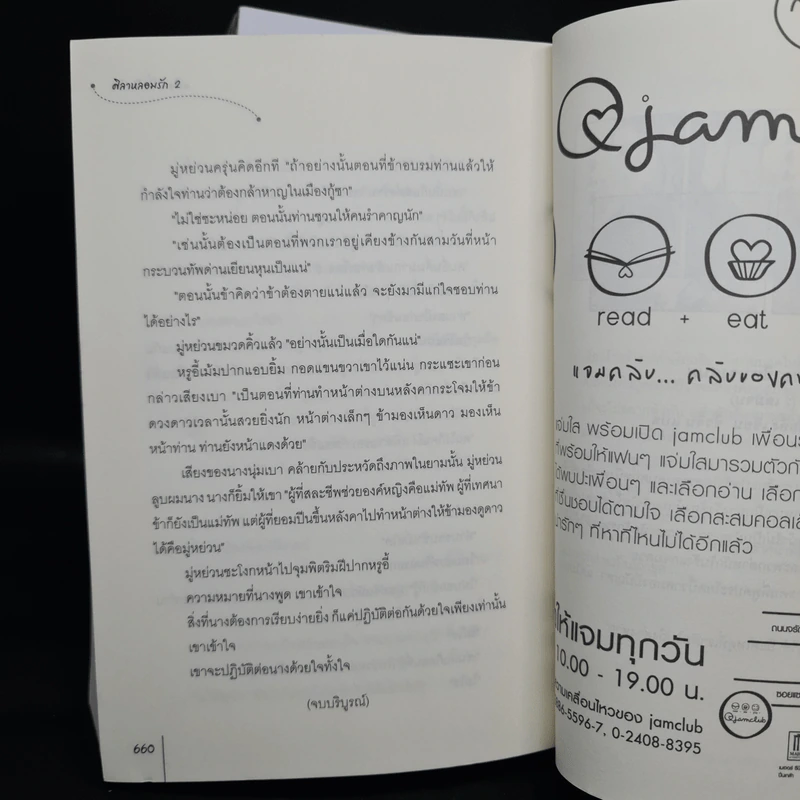 ศิลาหลอมรัก 2
มู่หย่วนครุ่นคิดอีกที "ถ้าอย่างนั้นตอนที่ข้าอบรมท่านแล้วให้
กำลังใจท่านว่าต้องกล้าหาญในเมืองกู้ซา"
"ไม่ใช่ซะหน่อย ตอนนั้นท่านชวนให้คนรำคาญนัก"
"เช่นนั้นต้องเป็นตอนที่พวกเราอยู่เคียงข้างกันสามวันที่หน้า
กระบวนทัพด่านเยียนหุนเป็นแน่"
"ตอนนั้นข้าคิดว่าข้าต้องตายแน่แล้ว จะยังมามีแก่ใจชอบท่าน
ได้อย่างไร"
มู่หย่วนขมวดคิ้วแล้ว "อย่างนั้นเป็นเมื่อใดกันแน่"
หรูอี้เม้มปากแอบยิ้ม กอดแขนขวาเขาไว้แน่น กระแซะเขาก่อน
กล่าวเสียงเบา "เป็นตอนที่ท่านทำหน้าต่างบนหลังคากระโจมให้ข้า
ดวงดาวเวลานั้นสวยยิ่งนัก หน้าต่างเล็กๆ ข้ามองเห็นดาว มองเห็น
หน้าท่าน ท่านยังหน้าแดงด้วย"
เสียงของนางนุ่มเบา คล้ายกับประหวัดถึงภาพในยามนั้น มู่หย่วน
ลูบผมนาง นางก็ยิ้มให้เขา "ผู้ที่สละชีพช่วยองค์หญิงคือแม่ทัพ ผู้ที่เทศนา
ข้าก็ยังเป็นแม่ทัพ แต่ผู้ที่ยอมปีนขึ้นหลังคาไปทำหน้าต่างให้ข้ามองดูดาว
ได้คือมู่หย่วน"
มู่หย่วนชะโงกหน้าไปจุมพิตริมฝีปากหรูอี้
ความหมายที่นางพูด เขาเข้าใจ
สิ่งที่นางต้องการเรียบง่ายยิ่ง ก็แค่ปฏิบัติต่อกันด้วยใจเพียงเท่านั้น
เขาเข้าใจ
เขาจะปฏิบัติต่อนางด้วยใจทั้งใจ
(จบบริบูรณ์)
660
jam
read + eat
แจมคลับ... คลับของคน
แจ่มใส พร้อมเปิด jamclub เพื่อน
ที่พร้อมให้แฟนๆ แจ่มใสมารวมตัวกั
ได้พบปะเพื่อนๆ และเลือกอ่าน เลือก
ที่ชื่นชอบได้ตามใจ เลือกสะสมคอลเล
น่ารักๆ ที่หาที่ไหนไม่ได้อีกแล้ว
ให้แจมทุกวัน
10.00 - 19.00 น.
ความเคลื่อนไหวของ jamclub
86-5596-7, 0-2408-8395
jamclub
ถนนจรัญ